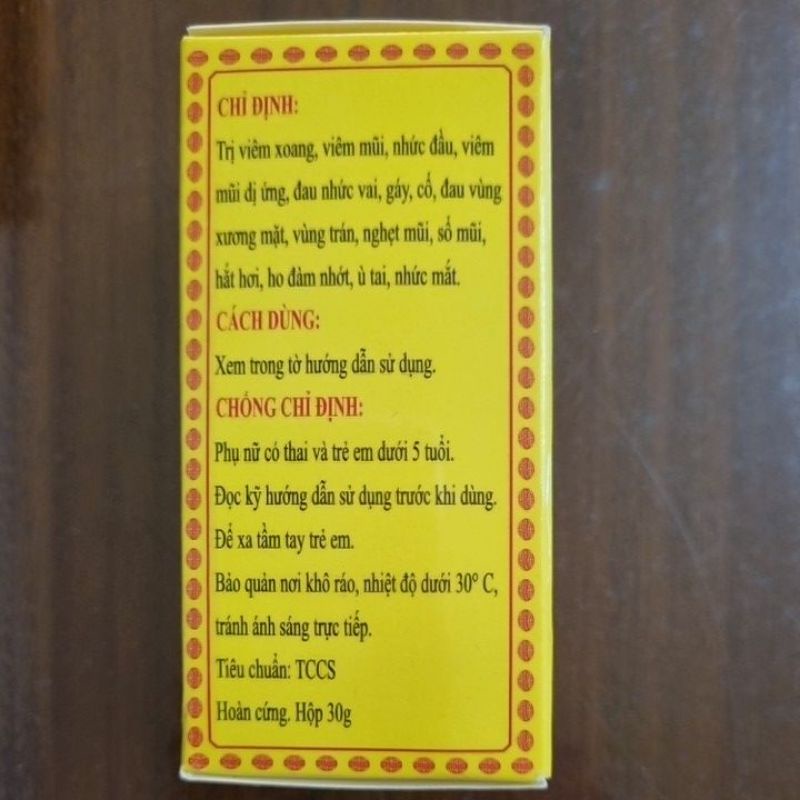 CHỈ ĐỊNH:
Trị viêm xoang, viêm mũi, nhức đầu, viêm
mũi dị ứng, đau nhức vai, gáy, cổ, đau vùng
xương mặt, vùng trán, nghẹt mũi, sổ mũi,
hắt hơi, ho đàm nhớt, ù tai, nhức mắt.
CÁCH DÙNG:
Xem trong tờ hướng dẫn sử dụng.
CHỐNG CHỈ ĐỊNH:
Phụ nữ có thai và trẻ em dưới 5 tuổi.
Đọc kỹ hướng dẫn sử dụng trước khi dùng.
Để xa tầm tay trẻ em.
Bảo quản nơi khô ráo, nhiệt độ dưới 30° C,
tránh ánh sáng trực tiếp.
Tiêu chuẩn: TCCS
Hoàn cứng. Hộp 30g